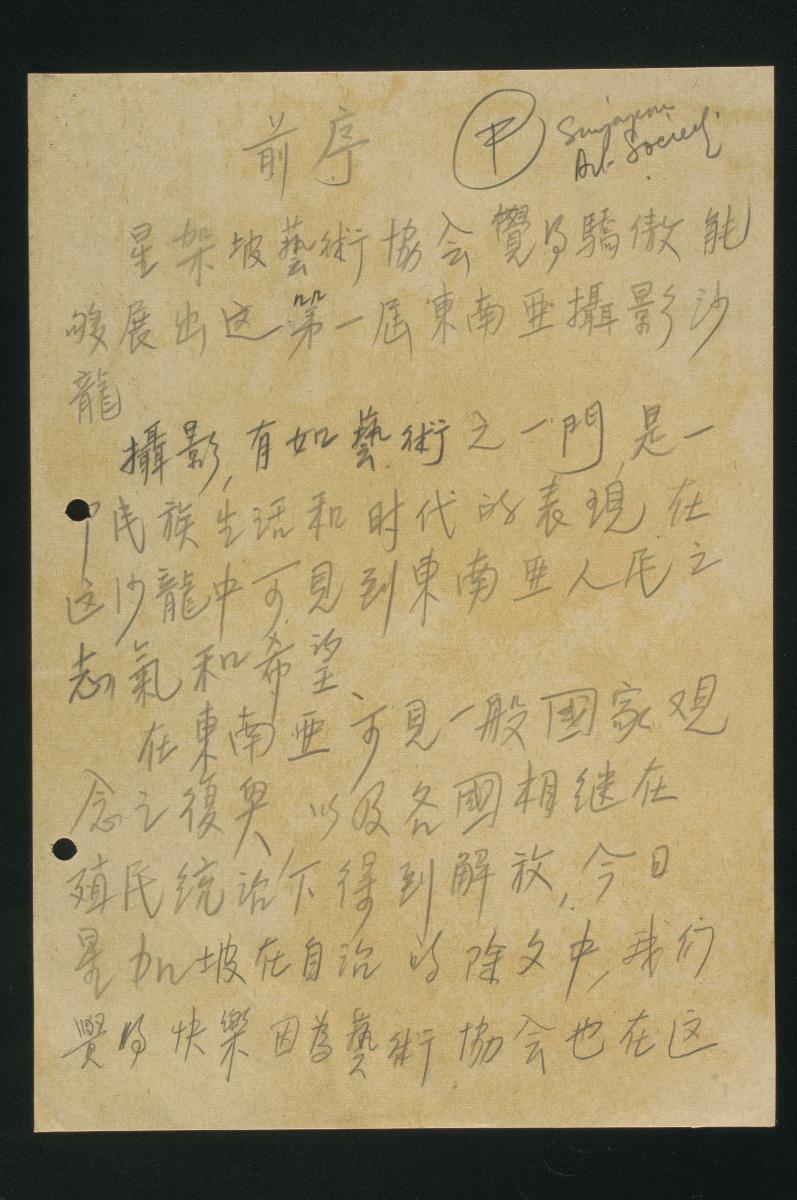 前序
中
Singapore
Art Society
星架坡藝術協会覺的驕傲能
够展出这第一屆東南亚攝影沙
龍
攝影,有如藝術之一門,是一
民族生活和时代的表現,在
这沙龍中可見到東南亚人民之
志氣和希望、
在東南亚,可見一般國家观
念之復興,以及各國相继在
殖民统治下得到解放,今日
星加坡在自治的除文中,我们
覺的快樂因為藝術協会也在这